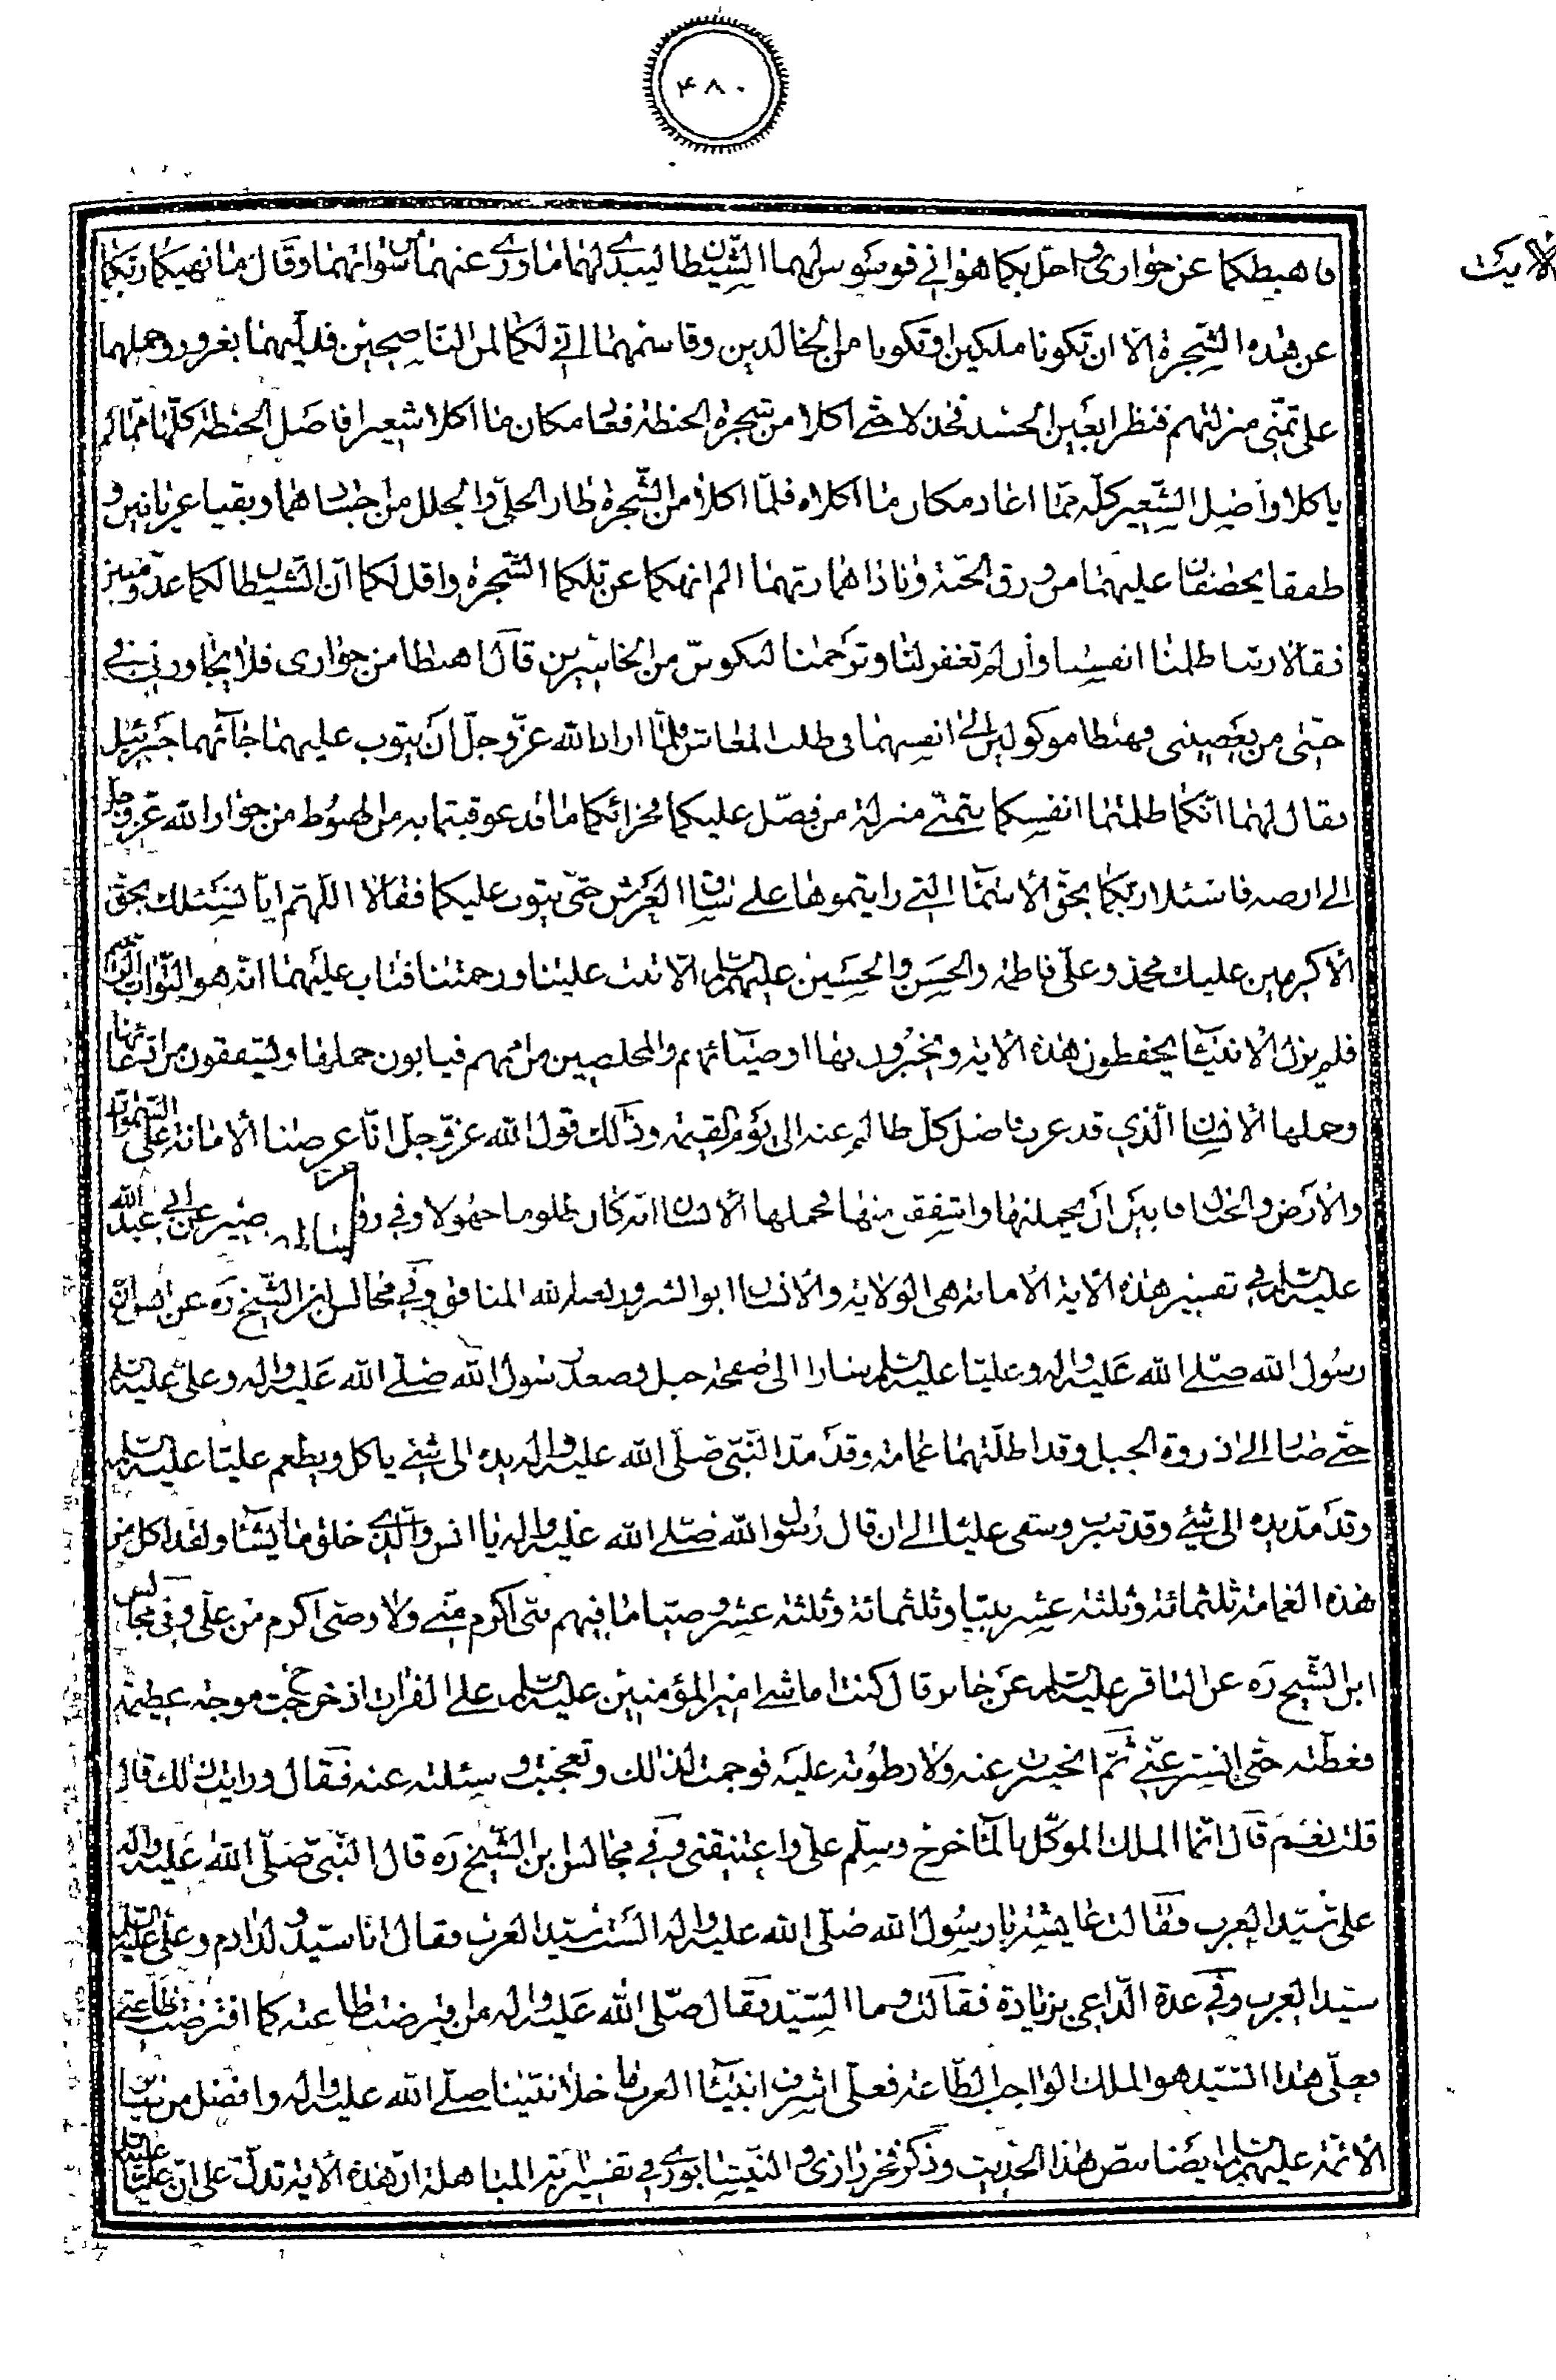 ۴۸۰
الآیت
فاهبطکما عن جواری و احل بکما هوانی فوسوس لهما الشیطان لیبدی لهما ما وری عنهما من سوآتهما و قال ما نهیکما ربکما
عن هذه الشجرة الا ان تکونا ملکین او تکونا من الخالدین و قاسمهما انی لکما لمن الناصحین فدلیهما بغرور و حملهما
علی تمنی منزلتهم فنظرا بعین الحسد فخذلا حتی اکلا من شجرة الحنطة فعاد مکان ما اکلا شعیرا فاصل الحنطة کلها مما لم
یاکلا و اصل الشعیر کله مما اعاد مکان ما اکلاه فلما اکلا من الشجرة طار الحلی و الحلل من اجسادهما و بقیا عریانین و
طفقا یخصفان علیهما من ورق الجنة و ناداهما ربهما الم انهکما عن تلکما الشجرة و اقل لکما ان الشیطان لکما عدو مبین
فقالا ربنا ظلمنا انفسنا و ان لم تغفر لنا و ترحمنا لنکونن من الخاسرین قال اهبطا من جواری فلا یجاورنی فی
جنتی من یعصینی فهبطا موکولین الی انفسهما فی طلب المعاش فلما اراد الله عز و جل ان یتوب علیهما جآئهما جبرئیل
فقال لهما انکما ظلمتما انفسکما بتمنی منزلة من فضل علیکما فجزائکما ما قد عوقبتما به من الهبوط من جوار الله عز و جل
الی ارضه فاسئلا ربکما بحق الاسمآء التی رایتموها علی ساق العرش حتی یتوب علیکما فقالا اللهم انا نسئلک بحق
الاکرمین علیک محمد و علی فاطمة و الحسن و الحسین علیهم السلام الا تبت علینا و رحمتنا فتاب علیهما انه هو التواب الرحیم
فلم یزل الانبیآء یحفظون هذه الامانة و یخبرون بها اوصیآئهم و المخلصین من اممهم فیابون حملها و یشفقون من ادعائها
و حملها الانسان الذی قد عرف فاصل کل ظالم منه الی یوم القیمة و ذلک قول الله عز و جل انا عرضنا الامانة علی السموات
و الارض و الجبال فابین ان یحملنها و اشفقن منها فحملها الانسان انه کان ظلوما جهولا و فی بصیر عن ابی عبد الله
علیه السلام فی تفسیر هذه الآیة الامانة هی الولایة و الانسان ابو الشرور المنافق و فی مجالس ابن الشیخ ره عن انس ان
رسول الله صلی الله علیه و اله و علیا علیه السلام سارا الی جبل فصعد رسول الله صلی الله علیه و اله و علی علیه السلام
حتی صارا الی ذروة الجبل و قد اظلتهما غمامة و قد مد النبی صلی الله علیه و اله یده الی شیء یاکل و یطعم علیا علیه السلام
و قد مد یده الی شیء و قد شرب و سقی علیا الی ان قال رسول الله صلی الله علیه و اله یا انس و الذی خلق ما یشآء لقد اکل من
هذه الغمامة ثلثمائة و ثلثة عشر نبیا و ثلثمائة و ثلثة عشر وصیا ما فیهم نبی اکرم منی و لا وصی اکرم من علی و فی مجالس
ابن الشیخ ره عن الباقر علیه السلام عن جابر قال کنت اماشی امیر المؤمنین علیه السلام علی الفرات اذ خرجت موجة عظیمة
فغطته حتی استتر عنی ثم انحسرت عنه و لا رطوبة علیه فوجمت لذلک و تعجبت و سئلته عنه فقال و رایت ذلک قال
قلت نعم قال انما الملک الموکل بالمآء خرج و سلم علی و اعتنقنی و فی مجالس ابن الشیخ ره قال النبی صلی الله علیه و اله
علی سید العرب فقالت عایشة یا رسول الله صلی الله علیه و اله الست سید العرب فقال انا سید ولد ادم و علی علیه السلام
سید العرب و فی عدة الداعی بزیادة فقالت و ما السید فقال صلی الله علیه و اله من فرضت طاعته کما افترضت طاعتی
فعلی هذا السید هو الملک الواجب الطاعة فعلی اشرف انبیآء العرب ما خلا نبینا صلی الله علیه و اله و افضل من
الائمة علیهم السلام ایضا بنص هذا الحدیث و ذکر فخر رازی و النیسابوری فی تفسیر آیة المباهلة ان هذه الآیة تدل علی ان علیا علیه السلام